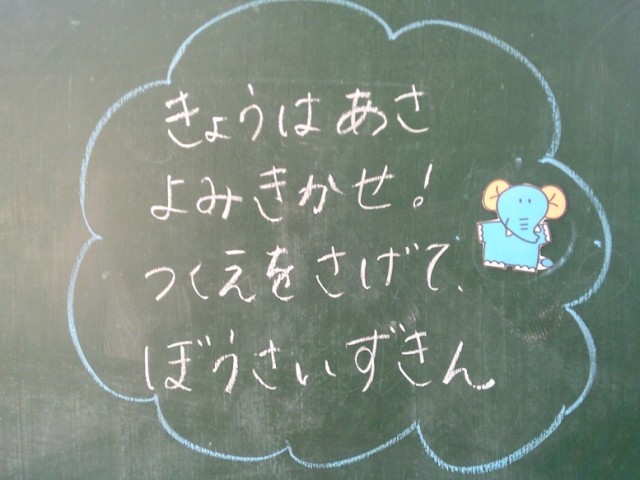 きょうはあさ
よみきかせ!
つくえをさげて、
ぼうさいずきん